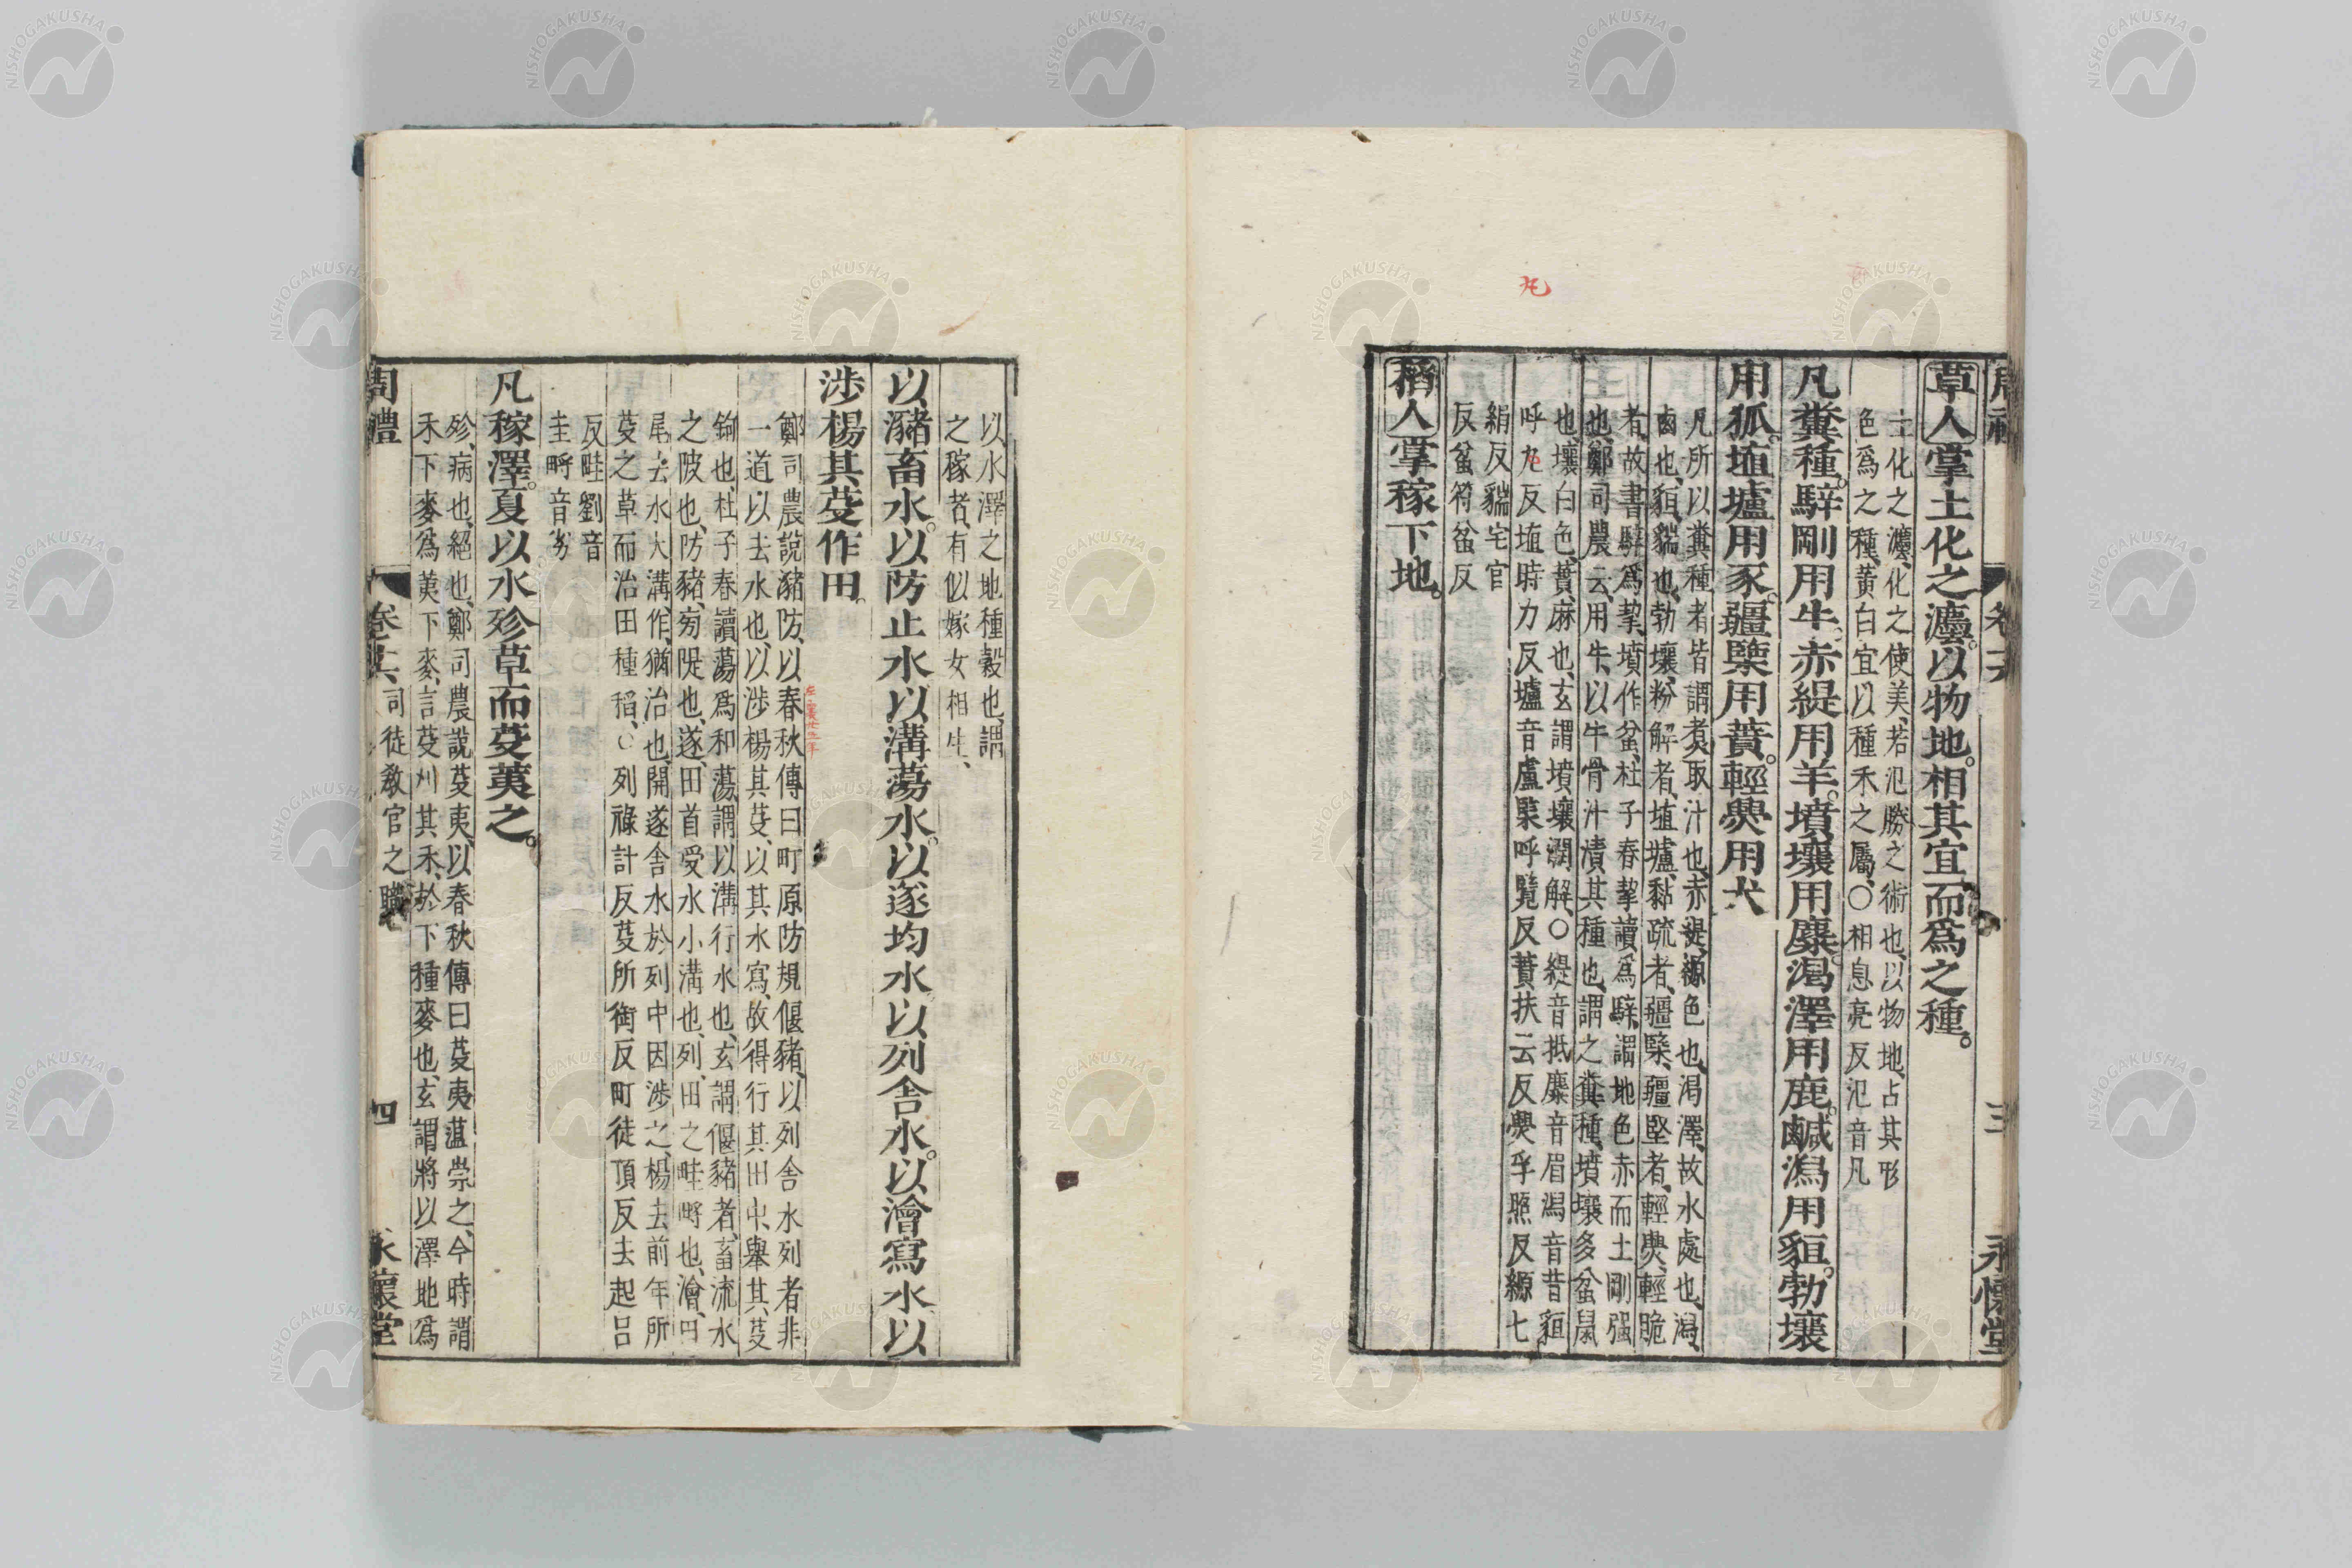 草人掌土化之灋。以物地。相其宜而爲之種。
土化之灋、化之使美、若氾勝之術也、以物地、占其形
色爲之種、黃白宜以種禾之屬、○相息亮反氾音凡
凡糞種。騂剛用牛。赤緹用羊。墳壤用麋。渴澤用鹿。鹹潟用貆。勃壤
用狐。埴壚用豕。疆㯺用蕡。輕㷼用犬
凡所以糞種者皆謂煮取汁也、赤緹、縓色也、渴澤、故水處也、潟、
鹵也、貆貒也、勃壤、粉解者、埴壚、黏疏者、疆㯺、疆堅者、輕㷼、輕脆
者、故書騂爲挈、墳作坌、杜子春挈讀爲騂、謂地色赤而土剛强
也、鄭司農云、用牛、以牛骨汁漬其種也、謂之糞種、墳壤多坌鼠
也、壤白色、蕡、麻也、玄謂墳壤潤解、○緹音抵麋音眉潟音昔貆
呼九反埴時力反壚音盧㯺呼覽反蕡扶云反㷼孚照反縓七
絹反貒宅官
反坌符坌反
稻人掌稼下地。
周禮 卷六 三 永懷堂
以水澤之地種穀也、謂
之稼者、有似嫁女相生、
以瀦畜水。以防止水。以溝蕩水。以遂均水。以列舍水。以澮寫水。以
涉楊其芟作田。
鄭司農說瀦防、以春秋傳曰町原防規偃豬、以列舍水列者非
一道以去水也、以涉楊其芟、以其水寫、故得行其田中、舉其芟
鉤也杜子春讀蕩爲和蕩、謂以溝行水也、玄謂偃豬者、畜流水
之陂也、防豬、旁隄也、遂、田首受水小溝也、列、田之畦㽟也、澮、田
尾去水大溝、作、猶治也、開遂舍水於列中因涉之、楊去前年所
芟之草而治田種稻、○列祿計反芟所銜反町徒頂反去起呂
反畦劉音
圭㽟音劣
凡稼澤。夏以水殄草而芟荑之。
殄、病也、絕也、鄭司農說芟夷、以春秋傳曰芟夷薀崇之、今時謂
禾下麥爲荑下麥、言芟刈其禾、於下種麥也、玄謂將以澤地爲
周禮 卷十六 司徒敎官之職 四 永懷堂